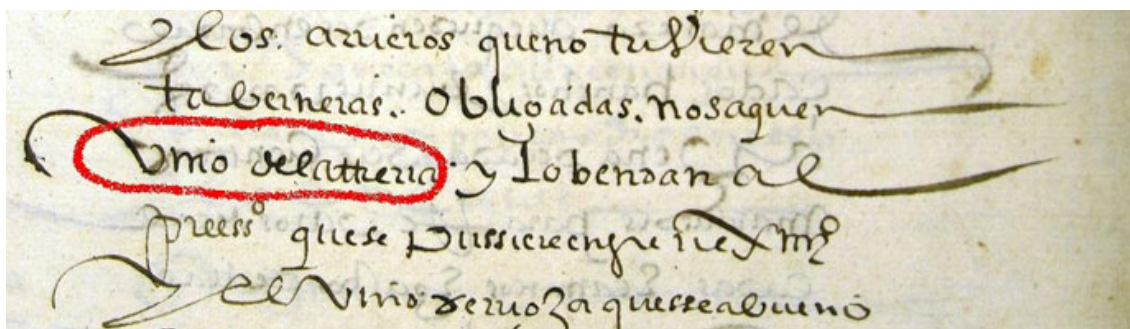 y los arrieros que no tuVieren
taberneras. obligadas. no saquen
Vino de la ttreria y lo bendan al
preçio que se pussiere
y el Vino de rrioxa que sea bueno